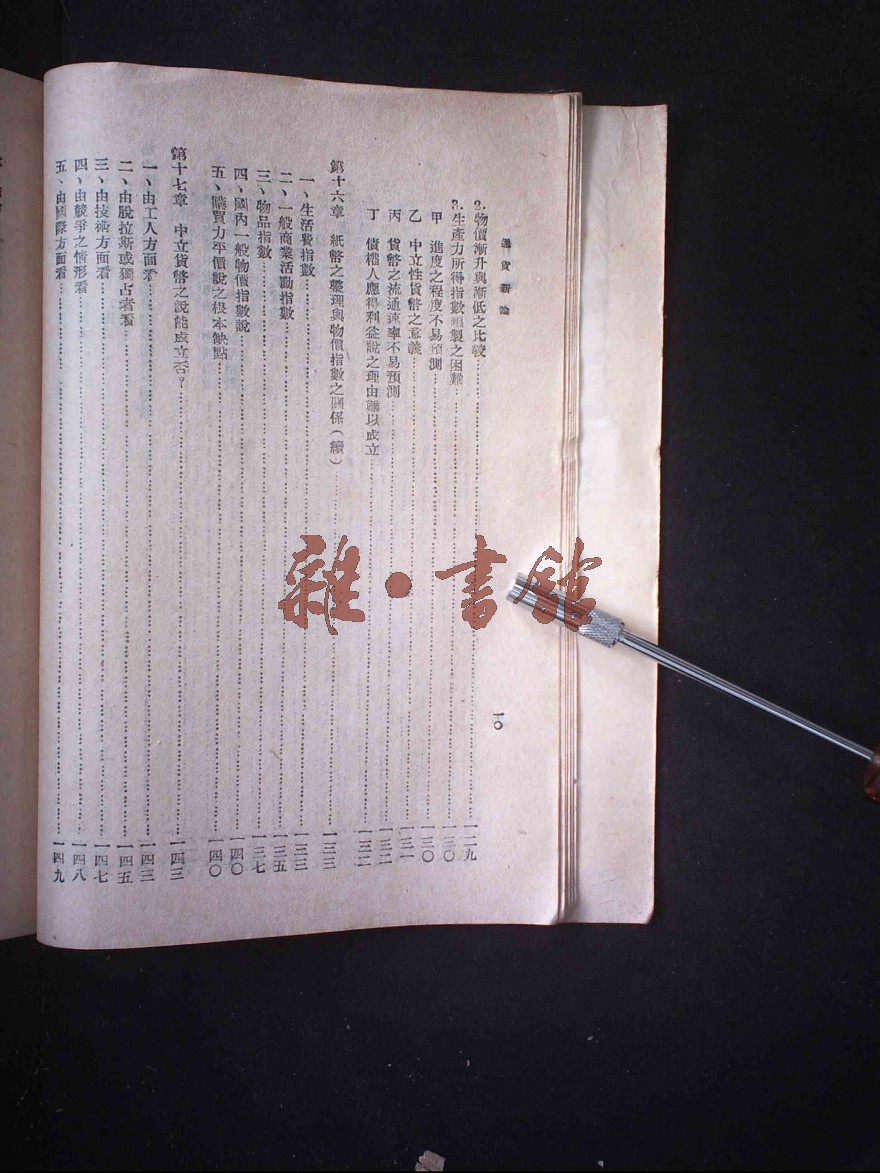 通貨新論
一〇
2. 物價漸升與漸低之比較……一二九
3. 生產力所得指數編製之困難……一三〇
甲 進度之程度不易預測……一三〇
乙 中立性貨幣之意義……一三一
丙 貨幣之流通速率不易預測……一三二
丁 債權人應得利益說之理由難以成立……一三二
第十六章 紙幣之整理與物價指數之關係(續)……一三三
一、生活費指數……一三三
二、一般商業活動指數……一三五
三、物品指數……一三七
四、國內一般物價指數說……一四〇
五、購買力平價說之根本缺點……一四〇
第十七章 中立貨幣之說能成立否?……一四三
一、由工人方面看……一四三
二、由脫拉斯或獨占者看……一四五
三、由技術方面看……一四七
四、由競爭之情形看……一四八
五、由國際方面看……一四九
雜·書館